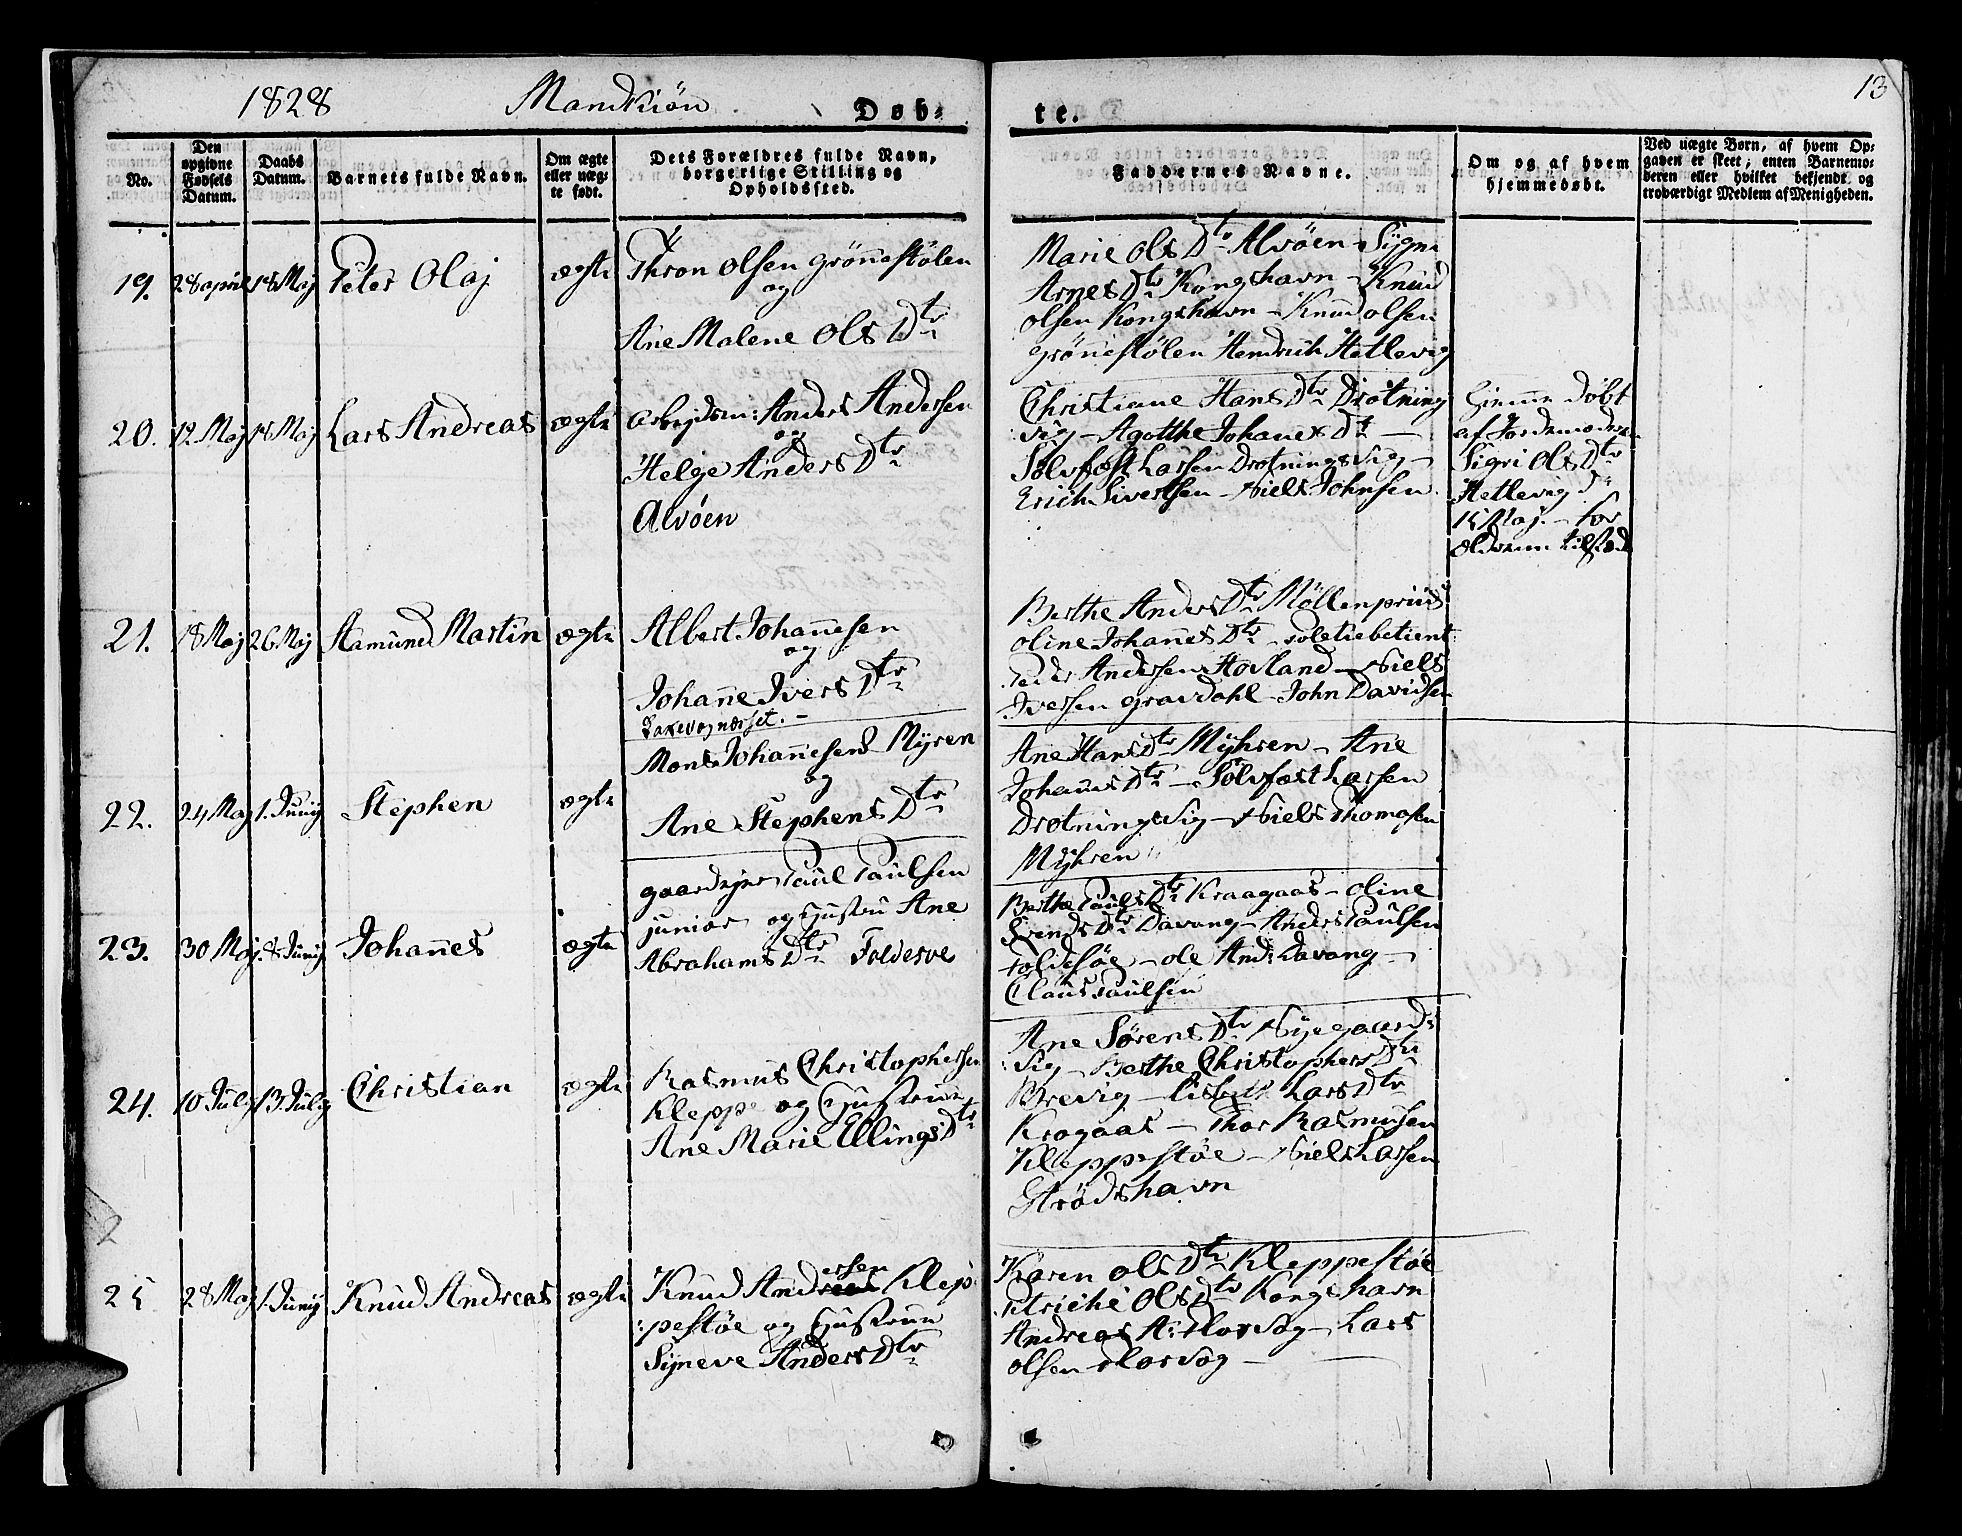 1828 Mandkiön Døb-
te. 13
No.
Den opgivne Fødsels Datum.
Daabs Datum.
Barnets fulde Navn.
Om ægte eller uæg-
te født.
Dets Forældres fulde Navn,
borgerlige Stilling og
Opholdssted.
Faddernes Navne.
Om og af hvem
hjemmedøbt.
Ved uægte Børn, af hvem Op-
gaven er skeet; enten Barnemo-
deren eller hvilket bekjendt og
troværdigt Medlem af Menigheden.
19. 28 april 18 Maj Peter Olaj ægte
Thron Olsen Grönnestölen
og
Ane Malene Ols Dtr
Marie Ols Dtr Alvöen - Sygni
Arnes Dtr Kongshavn - Knud
Olsen Kongshavn - Knud olsen
Grönnestölen Hendrich Hetlevig
20. 12 Maj 18 Maj Lars Andreas ægte
Arbejdsm: Anders Andersen
og
Helge Anders Dtr
Alvöen
Christiane Hans Dtr Drotning
vig - Agotthe Johanes Dtr -
Sølvfest Larsen Drotningsvig -
Erich Sivertsen - Niels Johnsen
Giemme Döbt
af Jordemoderen
Sigri Ols Dtr
Hetlevig Dn
15 Maj. - For
ældrene tilstæde
21. 18 Maj 26 Maj Aamund Martin ægte
Albert Johannesen
og
Johanne Ivers Dtr
Bertha Anders Dtr Möllenpriis
Oline Johanes Dtr
Peder Andersen Hovland - Niels
Iversen Gravdahl - John Davidsen
22. 24 Maj 1. Junij Stephen ægte
Mons Johannesen Myren
og
Ane Stephens Dtr
Ane Hans Dtr Myhren - Ane
Johanes Dtr - Sölvfæst Larsen
Drotningsvig - Niels Thomasen
Myhren
23. 30 Maj 8 Junij Johannes ægte
gaardejer Paul Paulsen
junior og Hustru Ane
Abrahams Dtr Foldesøe
Berthe Pauls Dtr Kraagaas - Oline
Svends Dtr Davang - Anders Paulsen
Foldesøe - Ole And: Davang -
Claus Paulsen
24. 10 July 13 July Christian ægte
Rasmus Christophersen
Kleppe og Hustrue
Ane Marie Ellings Dtr
Ane Sørens Dtr Nyegaards
vig - Berthe Christophers Dtr
Brevig - Lisbeth Lars Dtr
Kragaas - Thor Rasmusen
Kleppestöe - Niels Larsen
Strödshavn
25 28 Maj 1. Junij Knud Andreas ægte
Knud Andersen Klep
:pestöe og Hustrue
Sÿneve Anders Dtr
Karen Ols Dtr Kleppestöe
Ols Dtr Kongshavn
Andreas A: Florvog - Lars
Olsen Florvog -